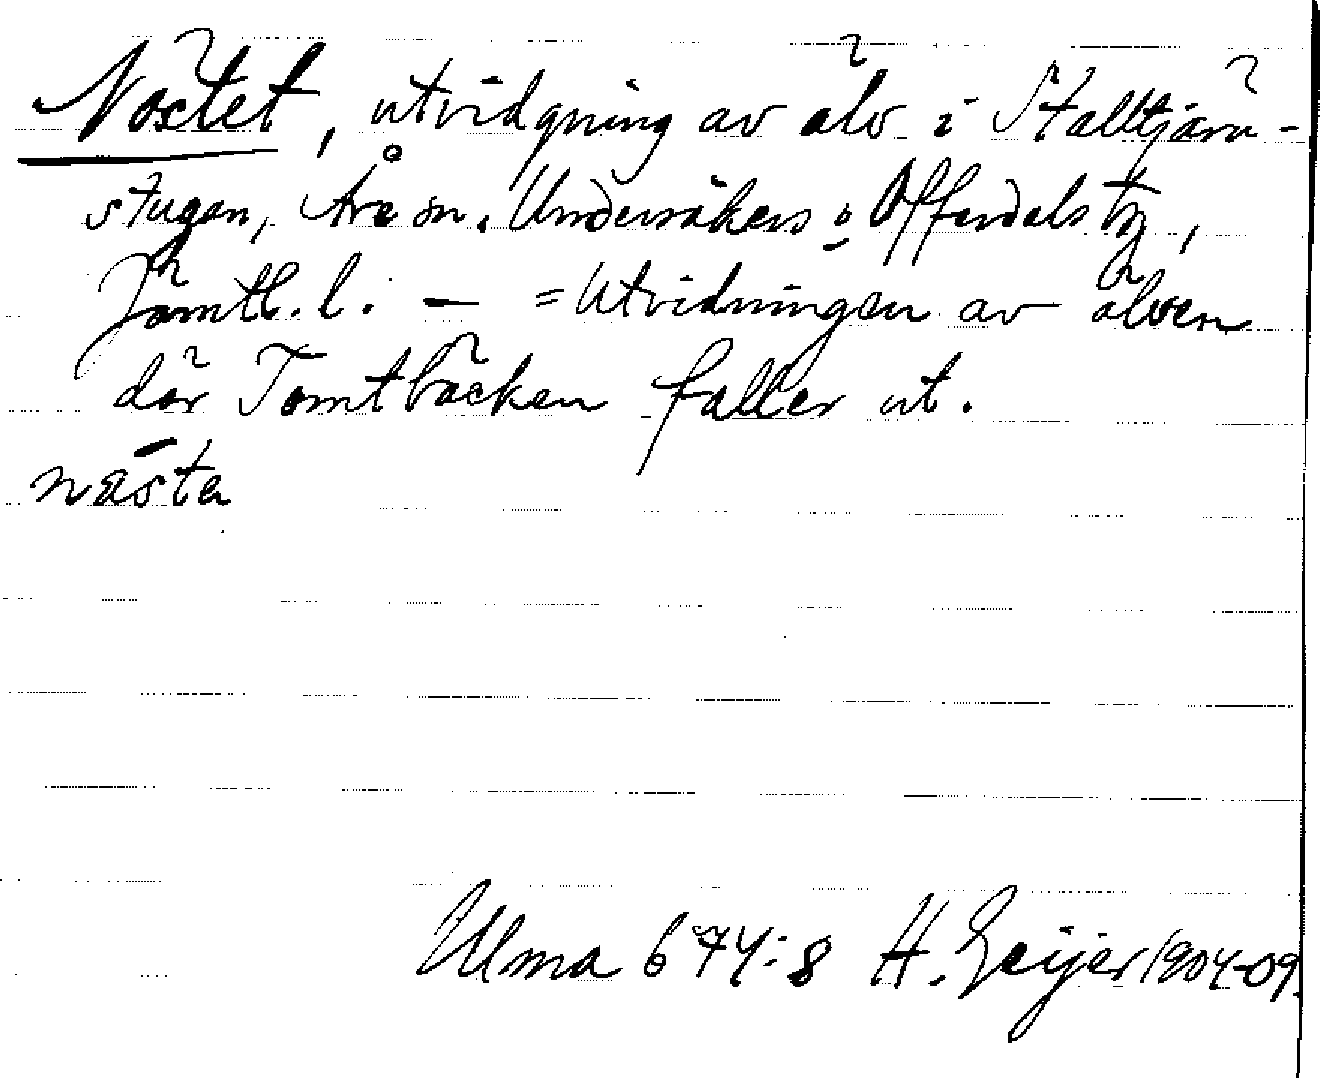 Nöstet, utvidgning av älv i Stalltjärn-
stugan, Åre sn. Undersåkers o Offerdals tg,
Jämtl. l. — = Utvidningen av älven
där Tomtbäcken faller ut.
nästa
Ulma 674:8 H. Geijer 1904-09.